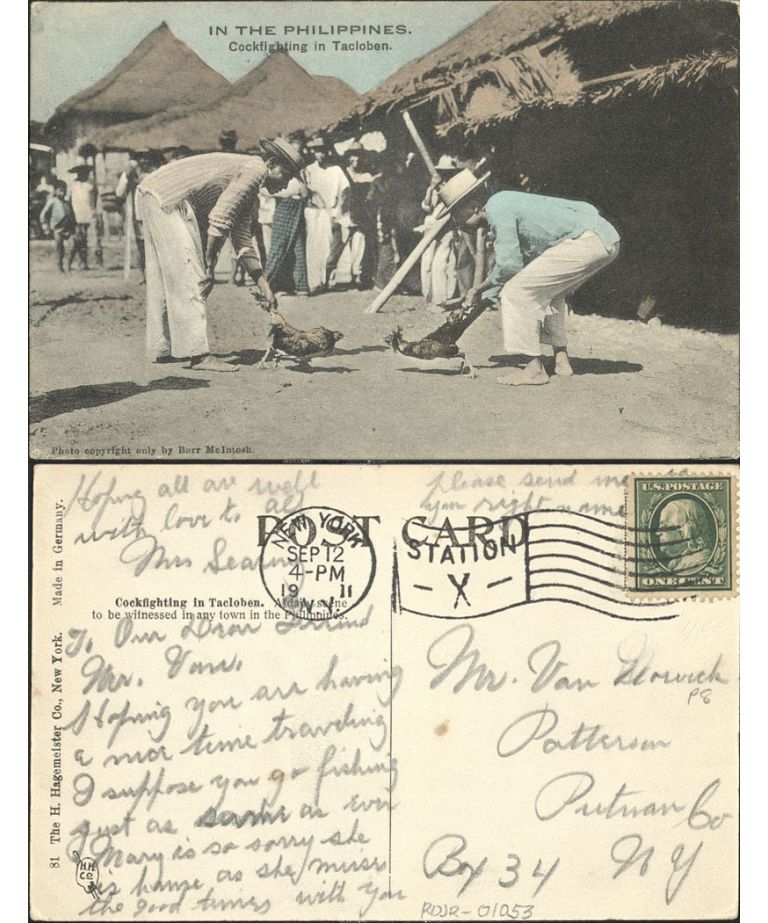 IN THE PHILIPPINES.
Cockfighting in Tacloben.
Photo copyright only by Burr McIntosh.
Hoping all are well
with love to all
Mrs
please send me
you right name
POST CARD
NEW YORK
SEP 12
4-PM
19 11
N.Y.
STATION
- X -
U.S. POSTAGE
ONE CENT
Cockfighting in Tacloben. A daily scene
to be witnessed in any town in the Philippines.
To Our Dear Friend
Mr. Van.
Hoping you are having
a nice time traveling
I suppose you go fishing
just as same as ever
Mary is so sorry she
is home as she misses
the good times with you
Mr. Van
P8
Patterson
Putnam Co
Box 34 N Y
81 The H. Hagemeister Co., New York. Made in Germany.
H.H.
Co
RDJR-01053